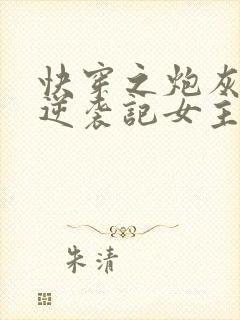 快穿之炮灰
逆袭記女主
朱清